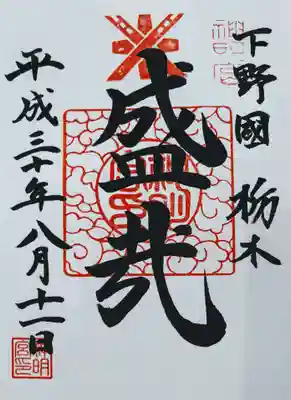 下野國 栃木
盛哉
平成三十年八月十一日